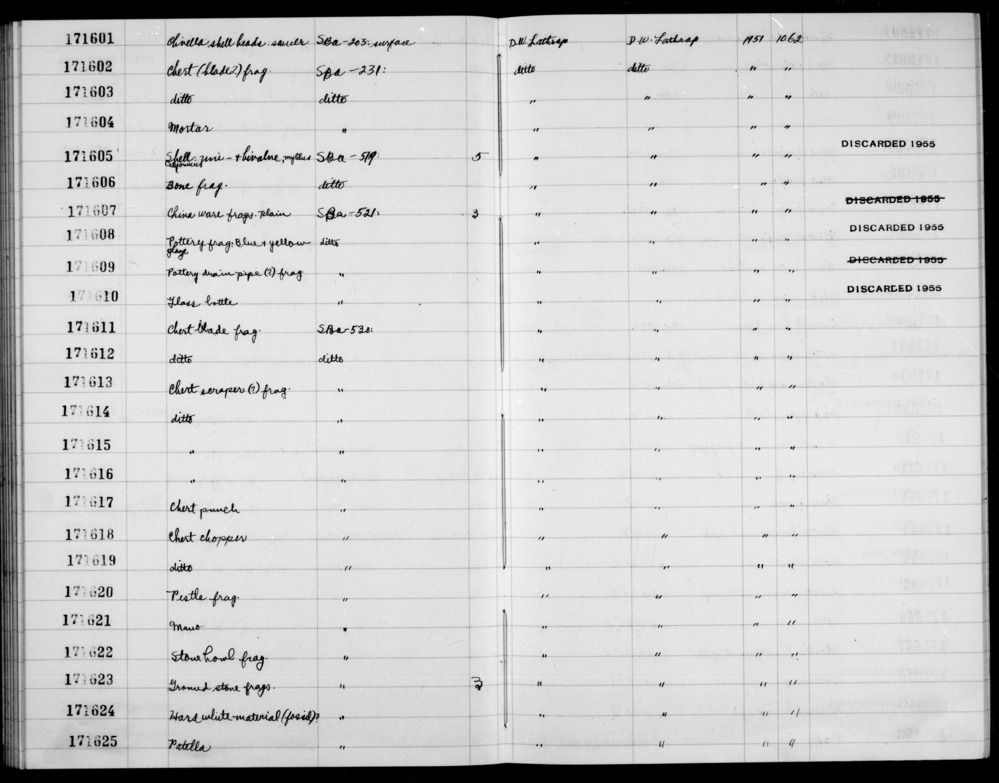 171601 Olivella shell beads: saucer SBa-203: surface D.W. Lathrap D.W. Lathrap 1951 1062
171602 Chert (blade?) frag. SBa-231: ditto ditto " "
171603 ditto ditto " " " "
171604 Mortar " " " " "
171605 Shell: univ- + bivalve, mytilus SBa-519: 5 " " " " DISCARDED 1955
californicus
171606 Bone frag. ditto " " " "
171607 China ware frags. plain SBa-521: 3 " " " " DISCARDED 1955
171608 Pottery frag: Blue + yellow ditto " " " " DISCARDED 1955
glaze
171609 Pottery drain-pipe (?) frag " " " " " DISCARDED 1955
171610 Glass bottle " " " " " DISCARDED 1955
171611 Chert blade frag. SBa-530: " " " "
171612 ditto ditto " " " "
171613 Chert scraper (?) frag. " " " " "
171614 ditto " " " " "
171615 " " " " " "
171616 " " " " " "
171617 Chert punch " " " " "
171618 Chert chopper " " " " "
171619 ditto " " " " "
171620 Pestle frag. " " " " "
171621 Mano " " " " "
171622 Stone bowl frag. " " " " "
171623 Ground stone frags. " " " " "
171624 Hard white material (fossil)? " " " " "
171625 Patella " " " " "